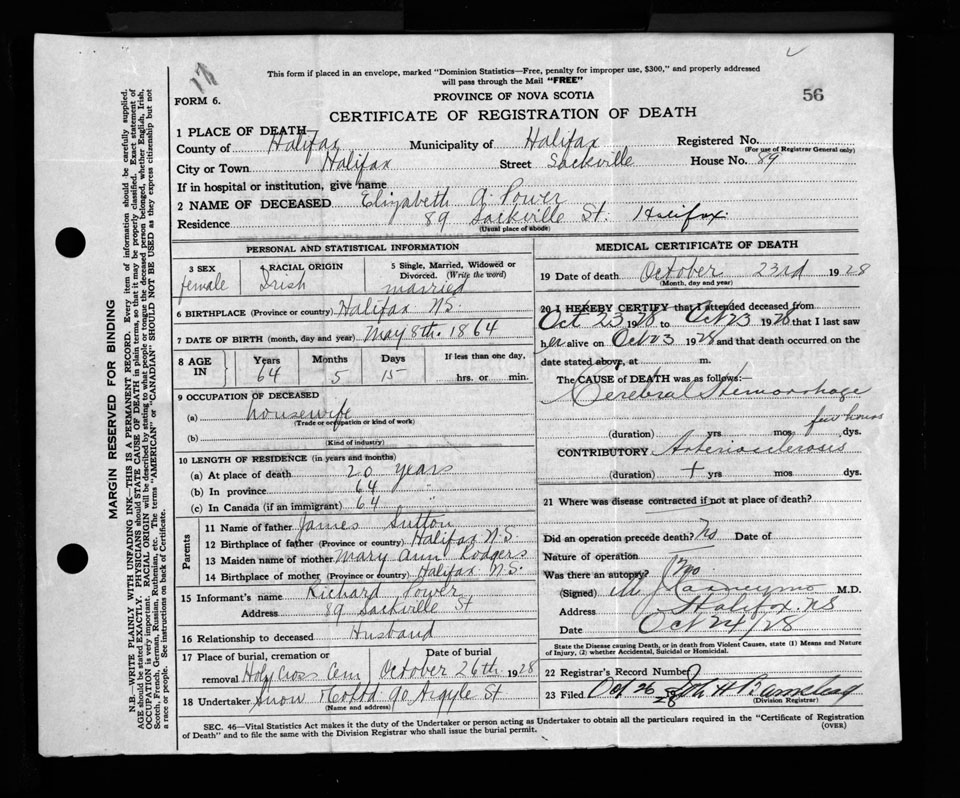 17
This form if placed in an envelope, marked "Dominion Statistics—Free, penalty for improper use, $300," and properly addressed
will pass through the Mail "FREE"
PROVINCE OF NOVA SCOTIA
56
FORM 6.
CERTIFICATE OF REGISTRATION OF DEATH
1 PLACE OF DEATH
County of Halifax Municipality of Halifax Registered No.
(For use of Registrar General only)
City or Town Halifax Street Sackville House No. 89
If in hospital or institution, give name
2 NAME OF DECEASED Elizabeth A. Power
Residence 89 Sackville St. Halifax.
(Usual place of abode)
PERSONAL AND STATISTICAL INFORMATION
3 SEX 4 RACIAL ORIGIN 5 Single, Married, Widowed or
Divorced. (Write the word)
female Irish married
6 BIRTHPLACE (Province or country) Halifax N.S.
7 DATE OF BIRTH (month, day and year) May 8th. 1864
8 AGE IN Years Months Days If less than one day,
64 5 15 hrs. or min.
9 OCCUPATION OF DECEASED
(a) housewife
(Trade or occupation or kind of work)
(b)
(Kind of industry)
10 LENGTH OF RESIDENCE (in years and months)
(a) At place of death 20 years
(b) In province 64 "
(c) In Canada (if an immigrant) 64 "
Parents
11 Name of father James Sutton
12 Birthplace of father (Province or country) Halifax N.S.
13 Maiden name of mother Mary Ann Rodgers
14 Birthplace of mother (Province or country) Halifax N.S.
15 Informant's name Richard Power
Address 89 Sackville St
16 Relationship to deceased Husband
17 Place of burial, cremation or Date of burial
removal Holy Cross Cem October 26th 1928
18 Undertaker Snow & Co Ltd 90 Argyle St
(Name and address)
MEDICAL CERTIFICATE OF DEATH
19 Date of death October 23rd 1928
(Month, day and year)
20 I HEREBY CERTIFY that I attended deceased from
Oct 23 1928 to Oct 23 1928 that I last saw
her alive on Oct 23 1928 and that death occurred on the
date stated above, at m.
The CAUSE of DEATH was as follows:—
Cerebral Hemorrhage
few hours
(duration) yrs mos. dys.
CONTRIBUTORY Arteriosclerosis
(duration) + yrs mos dys.
21 Where was disease contracted if not at place of death?
Did an operation precede death? No Date of
Nature of operation
Was there an autopsy? No
(Signed) M.D.
Address Halifax. NS
Date Oct 24/28
State the Disease causing Death, or in death from Violent Causes, state (1) Means and Nature
of Injury, (2) whether Accidental, Suicidal or Homicidal.
22 Registrar's Record Number
23 Filed Oct 26 28
(Division Registrar)
SEC. 46—Vital Statistics Act makes it the duty of the Undertaker or person acting as Undertaker to obtain all the particulars required in the "Certificate of Registration
of Death" and to file the same with the Division Registrar who shall issue the burial permit.
(OVER)
MARGIN RESERVED FOR BINDING
N.B.—WRITE PLAINLY WITH UNFADING INK—THIS IS A PERMANENT RECORD. Every item of information should be carefully supplied.
AGE should be stated EXACTLY. PHYSICIANS should STATE CAUSE OF DEATH in plain terms, so that it may be properly classified. Exact statement of
OCCUPATION is very important. RACIAL ORIGIN will be described by stating to what people or tongue the deceased person belonged, whether English, Irish,
Scotch, French, German, Russian, Ruthenian, etc. The terms "AMERICAN" or "CANADIAN" SHOULD NOT BE USED as they express citizenship but not
a race or people. See instructions on back of Certificate.